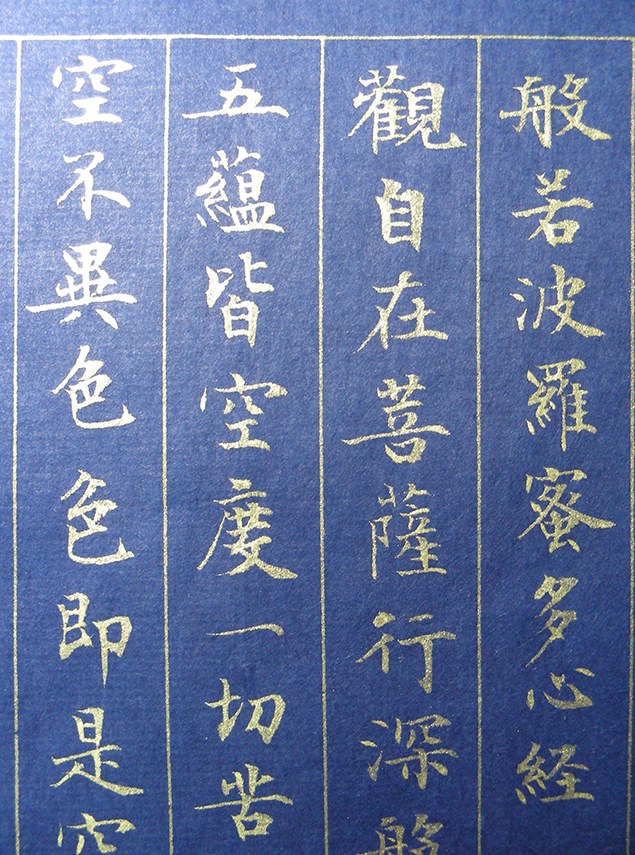 般若波羅蜜多心経
觀自在菩薩行深般
五蘊皆空度一切苦
空不異色色即是空